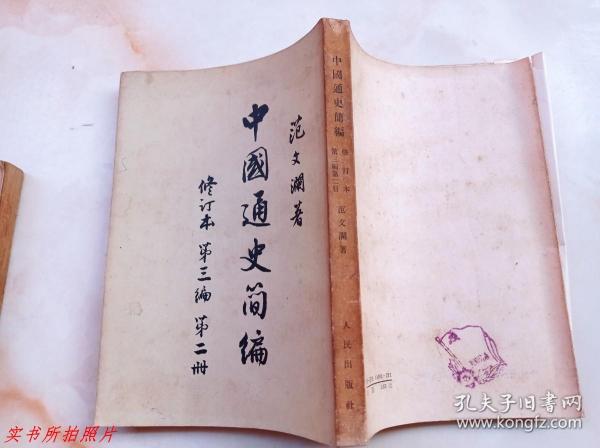 范文瀾著
中國通史简编
修订本 第三编 第二册
中國通史簡編
修訂本
第三編第二冊
范文瀾著
人民出版社
实书所拍照片
孔夫子旧书网
www.kongfz.com